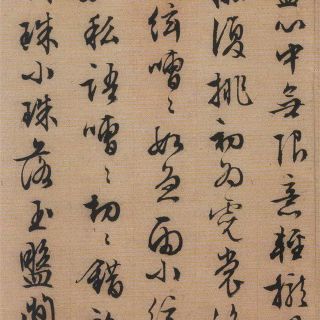 心中無限意輕攏
復挑初為霓裳
絃嘈〻如急雨小絃
私語嘈〻切〻錯
珠小珠落玉盤間